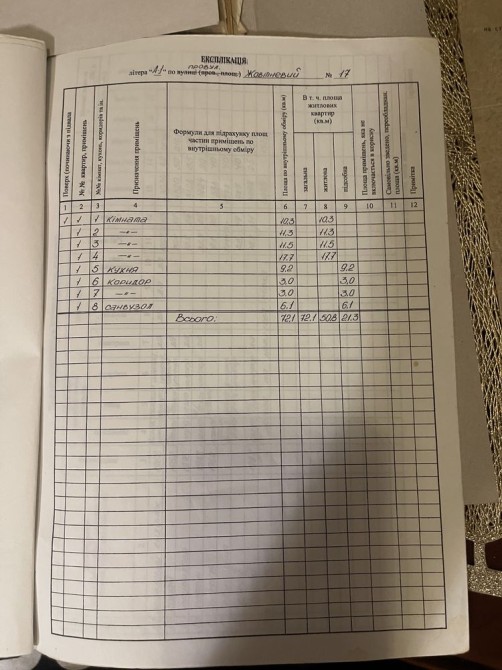 ЕКСПЛІКАЦІЯ
провул.
літера "А1" по вулиці (пров., площ.) Жовтневий № 17
Поверх (починаючи з підвала
№№ квартир, приміщень
№№ кімнат, кухонь, коридорів та ін.
Призначення приміщень
Формули для підрахунку площ частин приміщень по внутрішньому обміру
Площа по внутрішньому обміру (кв.м)
В т. ч. площа житлових квартир (кв.м)
загальна
житлова
підсобна
Площа приміщень, яка не включається в корисну
Самовільно зведено, переобладнан. площі (кв.м)
Примітка
1 2 3 4 5 6 7 8 9 10 11 12
1 1 1 Кімната 10.3 10.3
1 2 —"— 11.3 11.3
1 3 —"— 11.5 11.5
1 4 —"— 17.7 17.7
1 5 Кухня 9.2 9.2
1 6 Коридор 3.0 3.0
1 7 —"— 3.0 3.0
1 8 Санвузол 6.1 6.1
Всього: 72.1 72.1 50.8 21.3